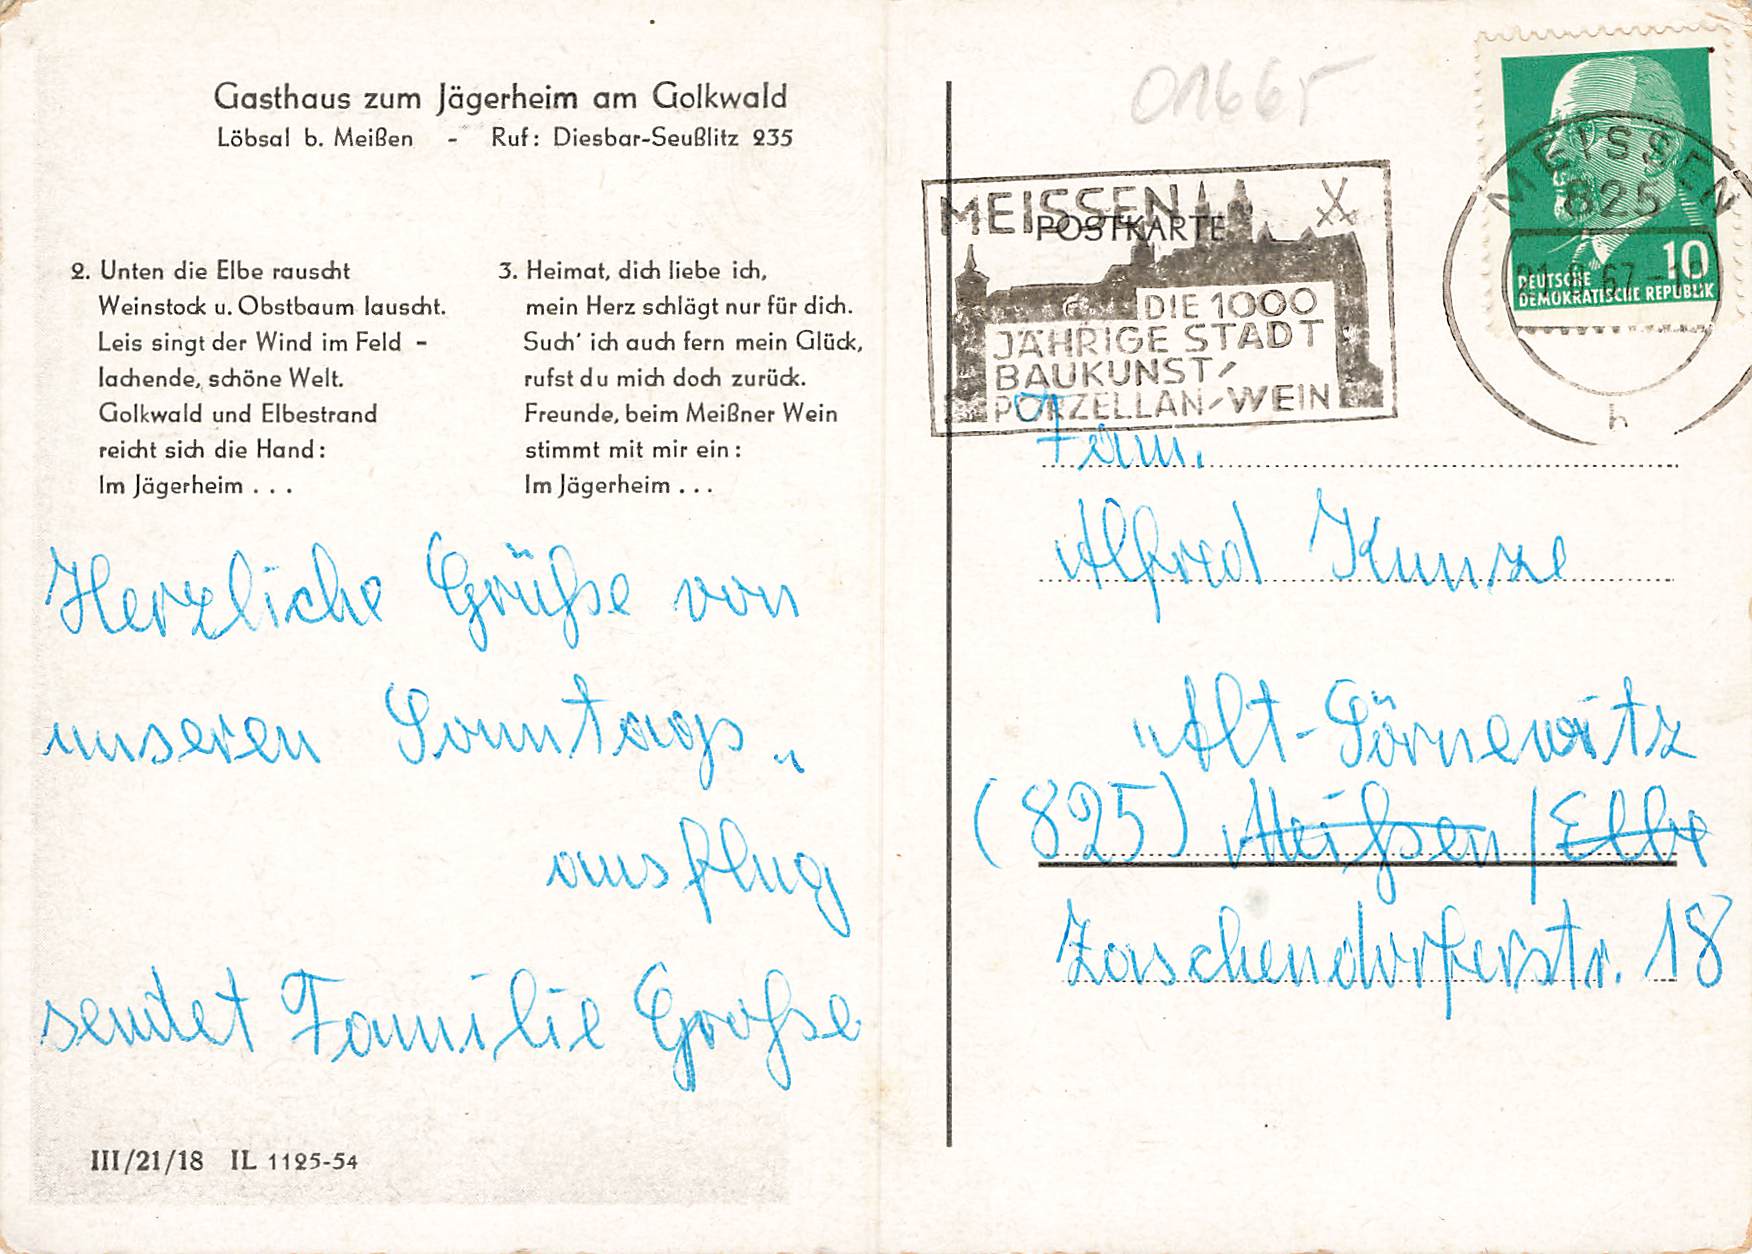 Gasthaus zum Jägerheim am Golkwald
Löbsal b. Meißen - Ruf: Diesbar-Seußlitz 235
2. Unten die Elbe rauscht
Weinstock u. Obstbaum lauscht.
Leis singt der Wind im Feld -
lachende, schöne Welt.
Golkwald und Elbestrand
reicht sich die Hand:
Im Jägerheim . . .
3. Heimat, dich liebe ich,
mein Herz schlägt nur für dich.
Such' ich auch fern mein Glück,
rufst du mich doch zurück.
Freunde, beim Meißner Wein
stimmt mit mir ein:
Im Jägerheim . . .
Herzliche Grüße von
unseren Sonntags„
ausflug
sendet Familie Große
III/21/18 IL 1125-54
01665
POSTKARTE
MEISSEN
DIE 1000
JÄHRIGE STADT
BAUKUNST/
PORZELLAN/WEIN
MEISSEN
825
67
h
10
DEUTSCHE
DEMOKRATISCHE REPUBLIK
Fam.
Alfred Kunze
Alt-Sörnewitz
(825) Meißen/Elbe
Zaschendorferstr. 18